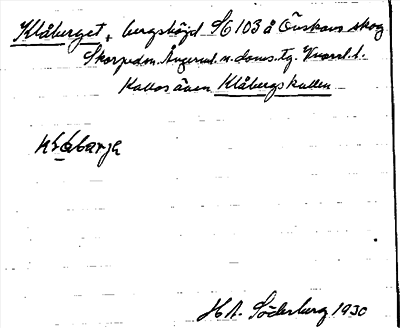 Klåberget, bergshöjd SC 103 å Övskovs skog
Skorpedn. Ångerml. n. doms. tg. Vnorrl. l.
Kallas även Klåbergskullen
H A. Söderberg 1930